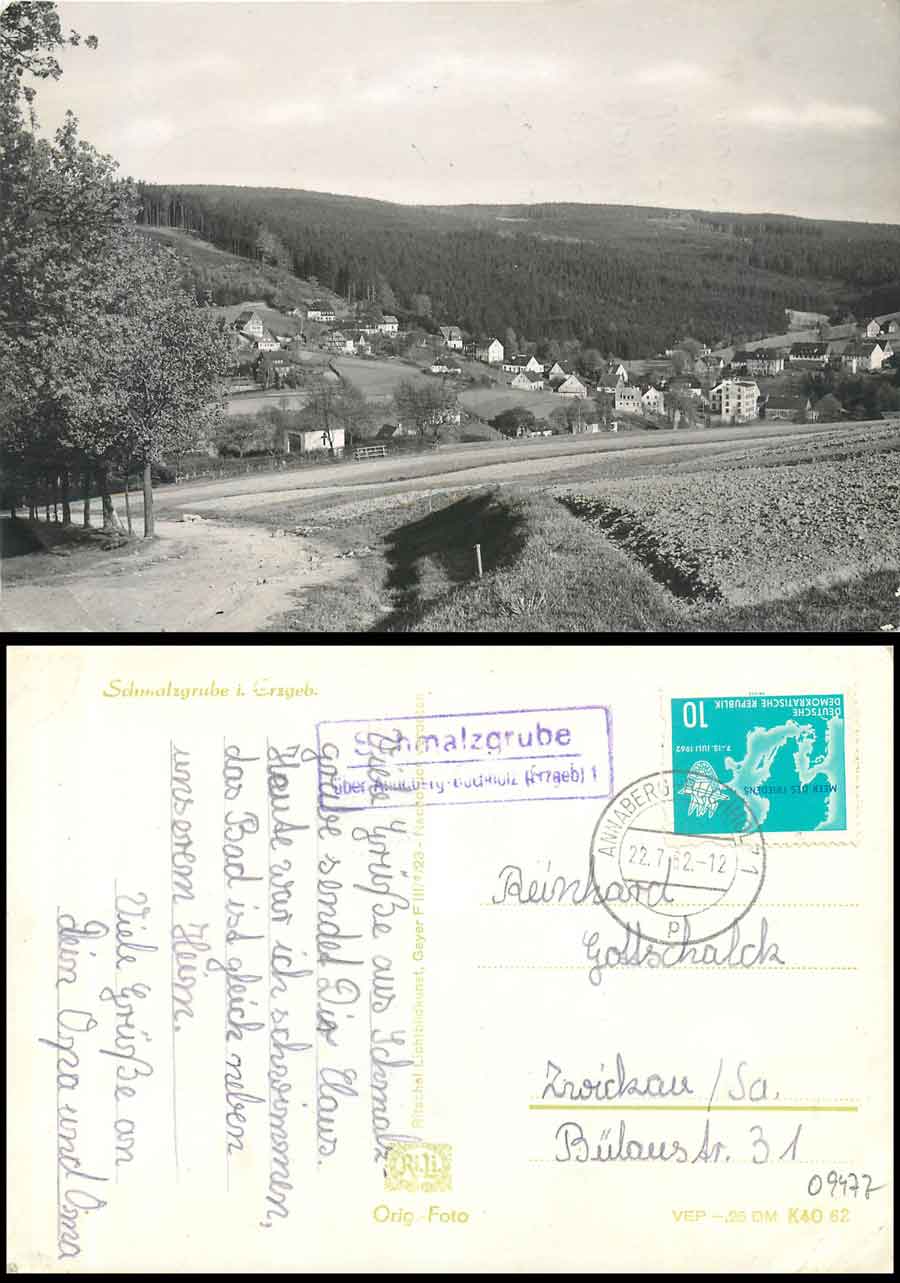 Schmalzgrube i. Erzgeb.
Schmalzgrube
über Annaberg-Buchholz (Erzgeb) 1
10
DEUTSCHE
DEMOKRATISCHE REPUBLIK
7.-15. JULI 1962
MEER DES FRIEDENS
ANNABERG-BUCHHOLZ 1
22.7.62.-12
p
Viele Grüße aus Schmalz
grube sendet Dir Klaus.
Heute war ich schwimmen,
das Bad ist gleich neben
unserem Heim.
Viele Grüße an
Dein Opa und Oma
Reinhard
Gottschalck
Zwickau / Sa.
Bülaustr. 31
09477
Ritschel Lichtbildkunst, Geyer F III/7/23 - Reproduktion
Ri.Li.
Orig.-Foto
VEP -.25 DM K40 62